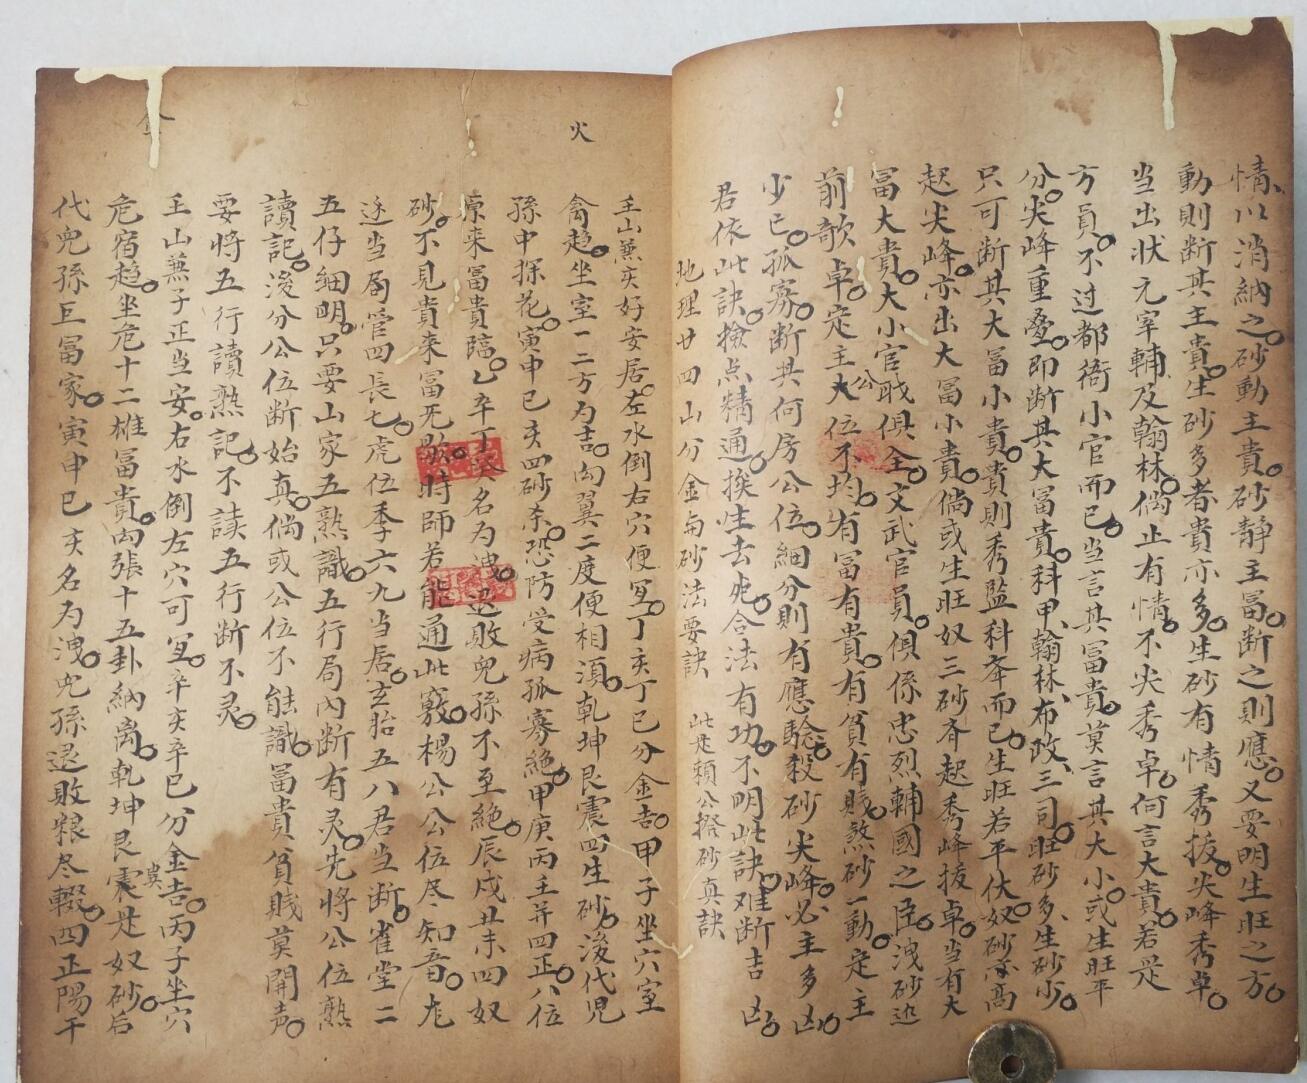 情以消納之砂動主貴砂靜主冨断之則應又要明生旺之方
動則断其主貴生砂多者貴亦多生砂有情秀拔尖峰秀卓
当出状元宰輔及翰林倘止有情不尖秀卓何言大貴若是
方員不过都衙小官而已当言其冨貴莫言其大小或生旺平
分尖峰重叠即断其大冨貴科甲翰林布政三司旺砂多生砂少
只可断其大冨小貴貴則秀監科夆而已生旺若平伏奴砂高
起尖峰亦出大冨小貴倘或生旺奴三砂斉起秀峰拔卓当有大
冨大貴大小官戝俱全文武官員俱係忠烈輔國之臣洩砂迯
前歌卓定主大公位不均有冨有貴有貧有賎煞砂一動定主
少亡孤寡断其何房公位細分則有應騐殺砂尖峰必主多凶
君依此訣撿点精通挨生去死合法有功不明此訣难断吉凶
地理廿四山分金与砂法要訣 此是頼公撥砂真訣
火
壬山兼亥好安居左水倒右穴便冝丁亥丁巳分金吉甲子坐穴室
禽趋坐室一二方为吉向翼二度便相湏乾坤艮震四生砂後代児
孫中探花寅申巳亥四砂杀恐防受病孤寡絶甲庚丙壬并四正八位
原来冨貴臨乙辛丁癸名为洩退敗兒孫不至絶辰戌丑未四奴
砂不見貴来冨无歇時師若能通此竅楊公公位尽知音尤
逐当局管四長七虎位季六九当居玄胎五八君当断雀堂二
五仔細明只要山家五熟識五行局内断有灵先将公位熟
讀記後分公位断始真倘或公位不能識冨貴貧賎莫開声
要将五行讀熟記不讀五行断不灵
金
壬山兼子正当安右水倒左穴可冝辛亥辛巳分金吉丙子坐穴
危宿趋坐危十二雄冨貴向張十五卦納离乾坤艮震是奴砂后
代兒孫巨冨家寅申巳亥名为洩兒孫退敗粮尽輟四正陽干